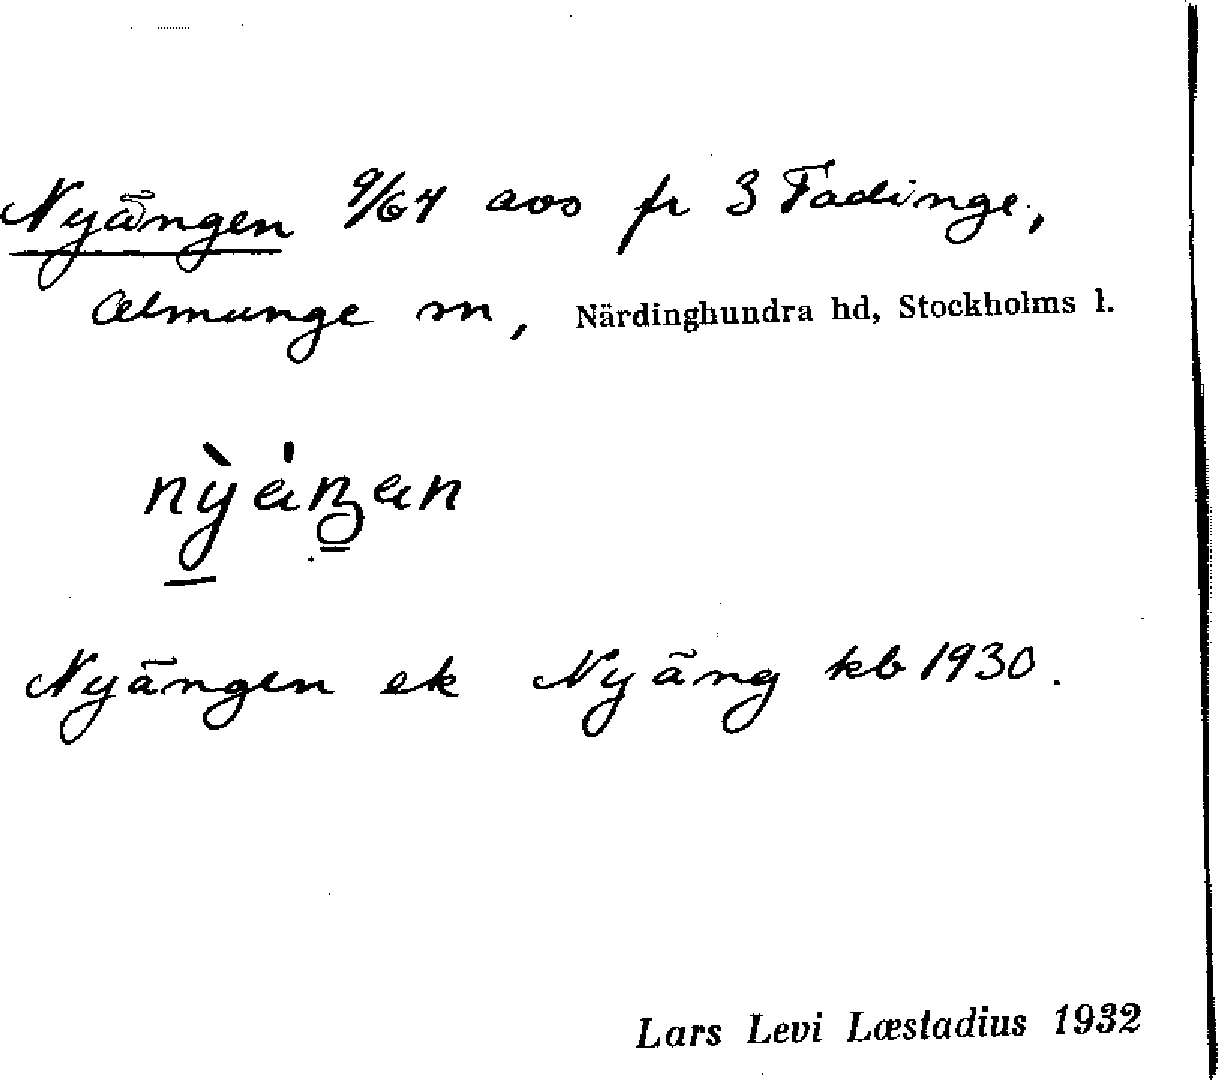 Nyängen 9/64 avs fr 3 Fadinge,
Almunge sn, Närdinghundra hd, Stockholms l.
Nyängen ek Nyäng kb 1930.
Lars Levi Læstadius 1932